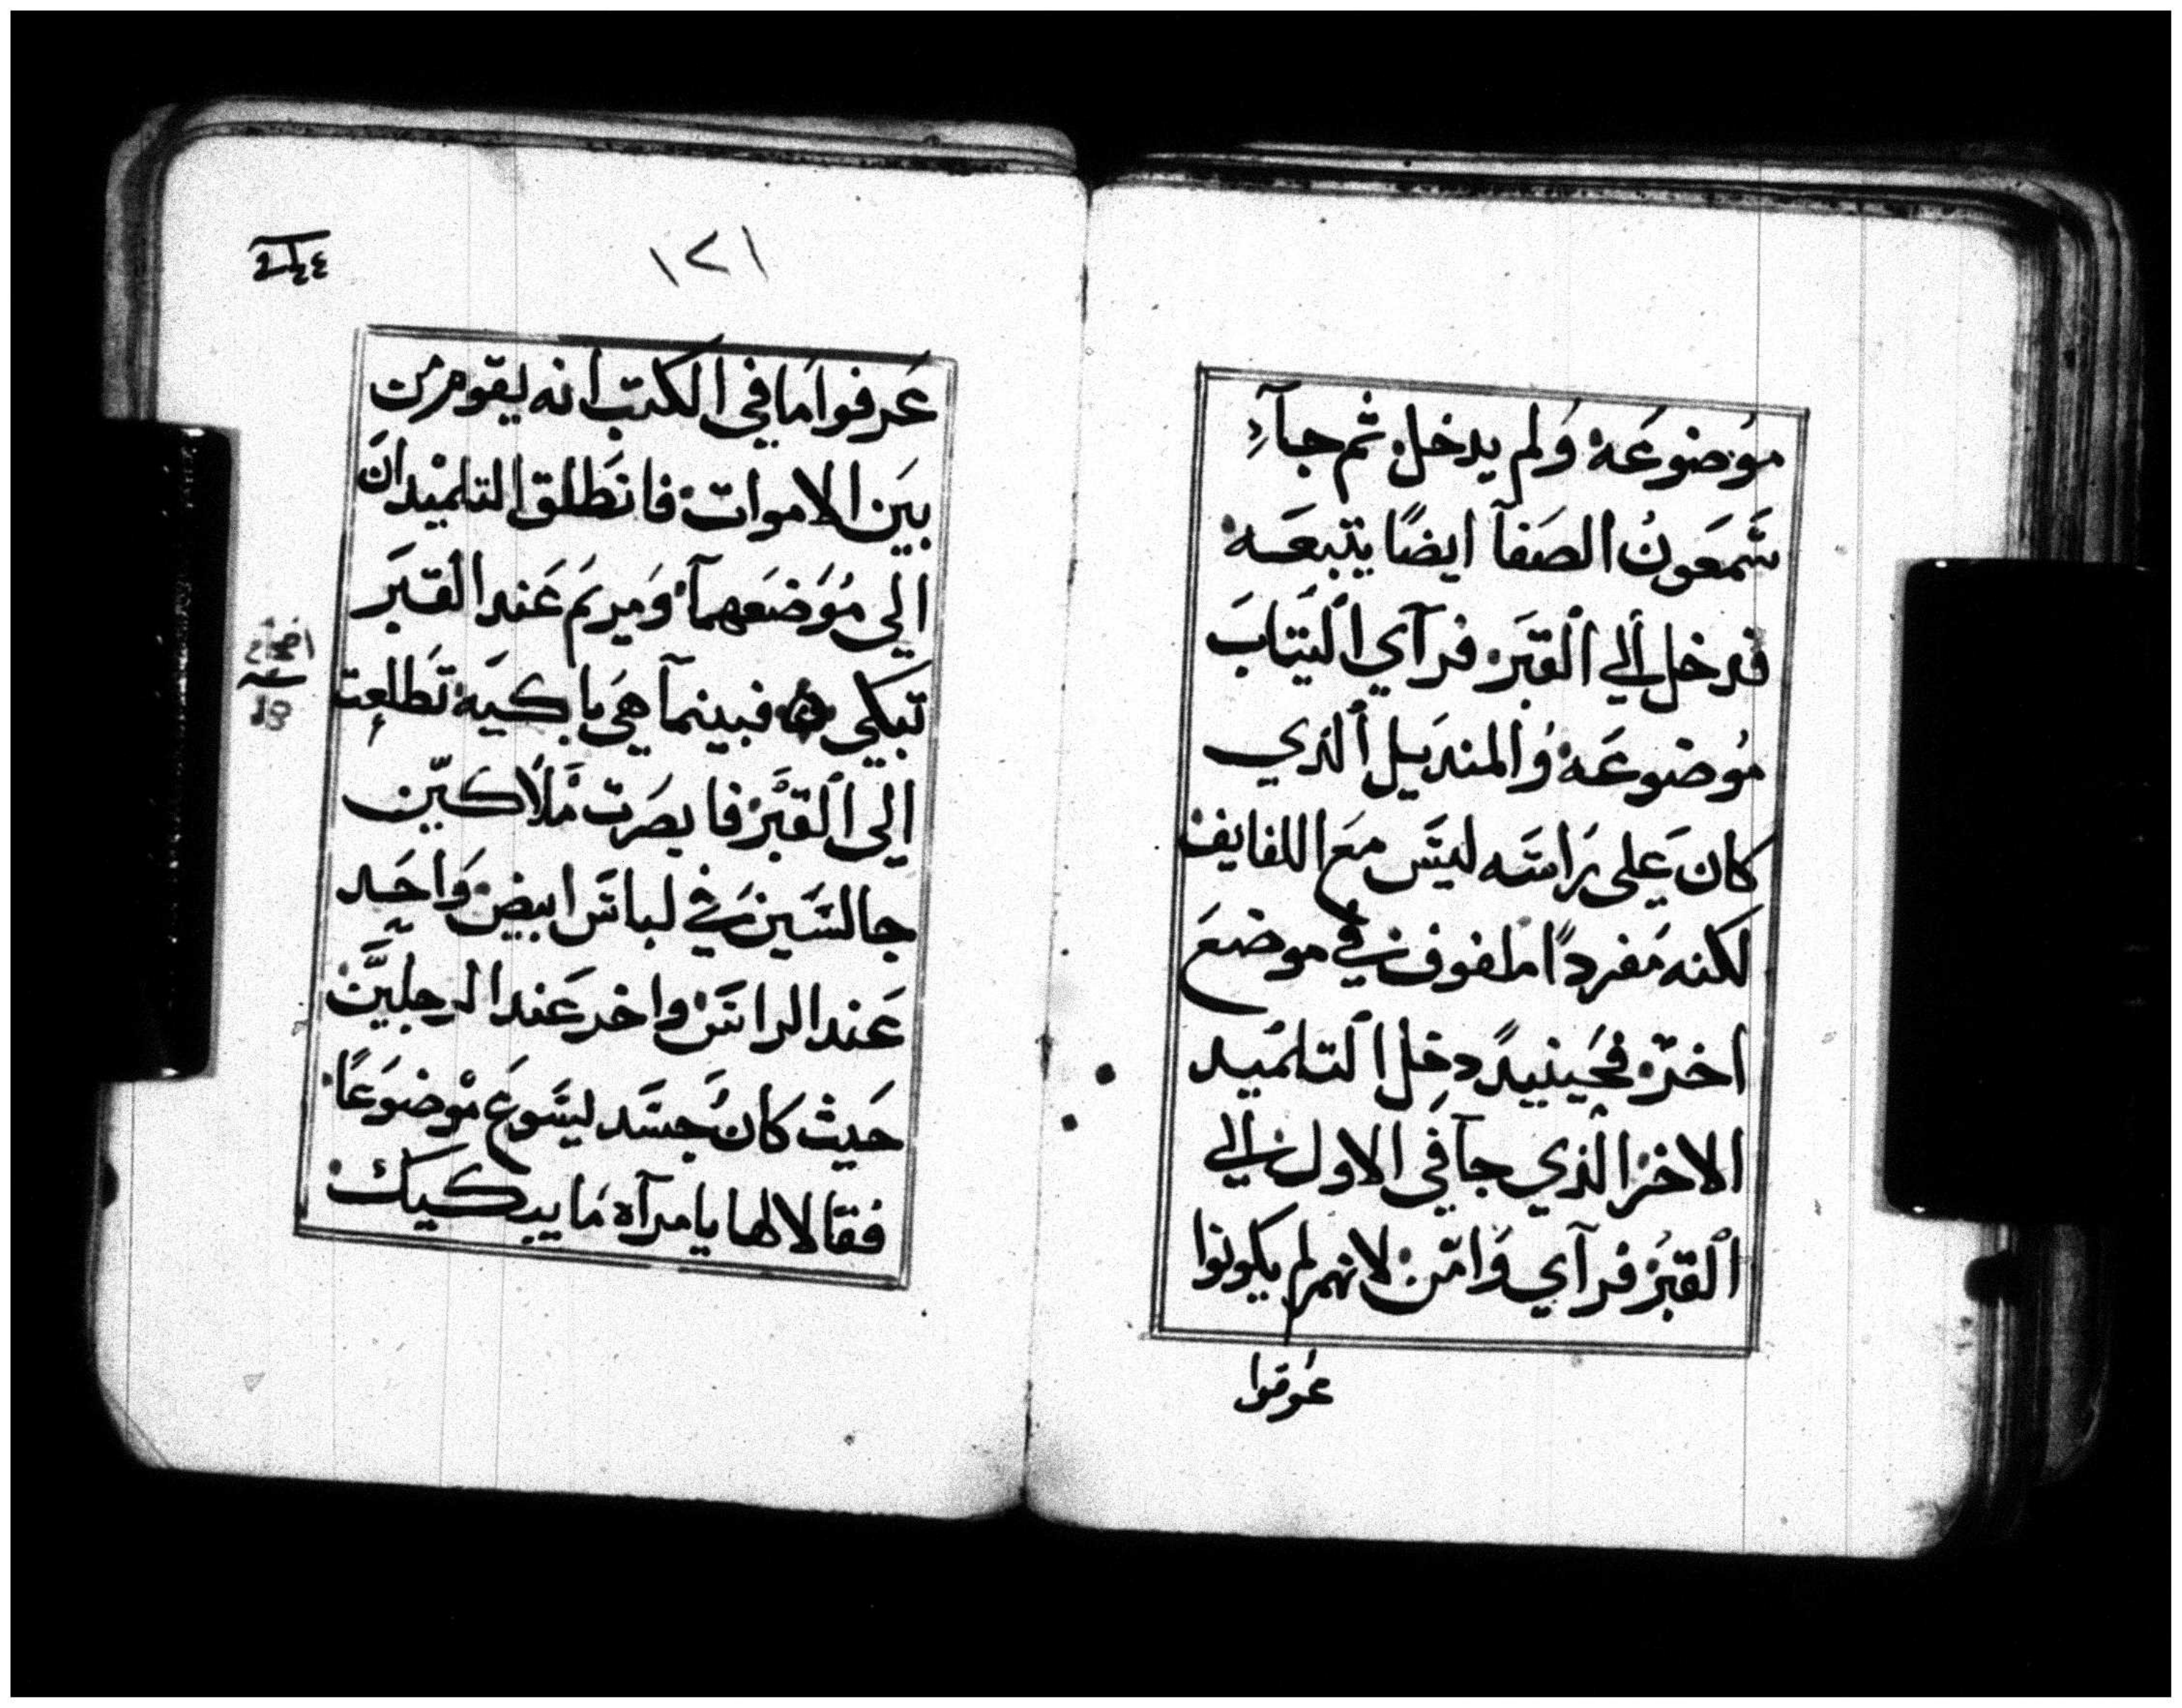 موضوعة ولم يدخل ثم جآء
شمعون الصفآ ايضًا يتبعه
فدخل الي القبر فرآي الثياب
موضوعة والمنديل الذي
كان علي راسه ليس مع اللفايف
لكنه مفردًا ملفوف في موضع
اخر فحينيدً دخل التلميد
الاخر الذي جآ في الاول الي
القبر فرآي وامن لانهم لم يكونوا
عرفوا
١٢١
عرفوا ما في الكتب انه يقوم من
بين الاموات فانطلق التلميدان
الي موضعهمآ ومريم عند القبر
تبكي فبينمآ هي باكيه تطلعت
الي القبر فابصرت ملاكين
جالسين في لباس ابيض واحد
عند الراس واخر عند الرجلين
حيث كان جسد ليسوع موضوعًا
فقالا لها يامرآه ما يبكيك